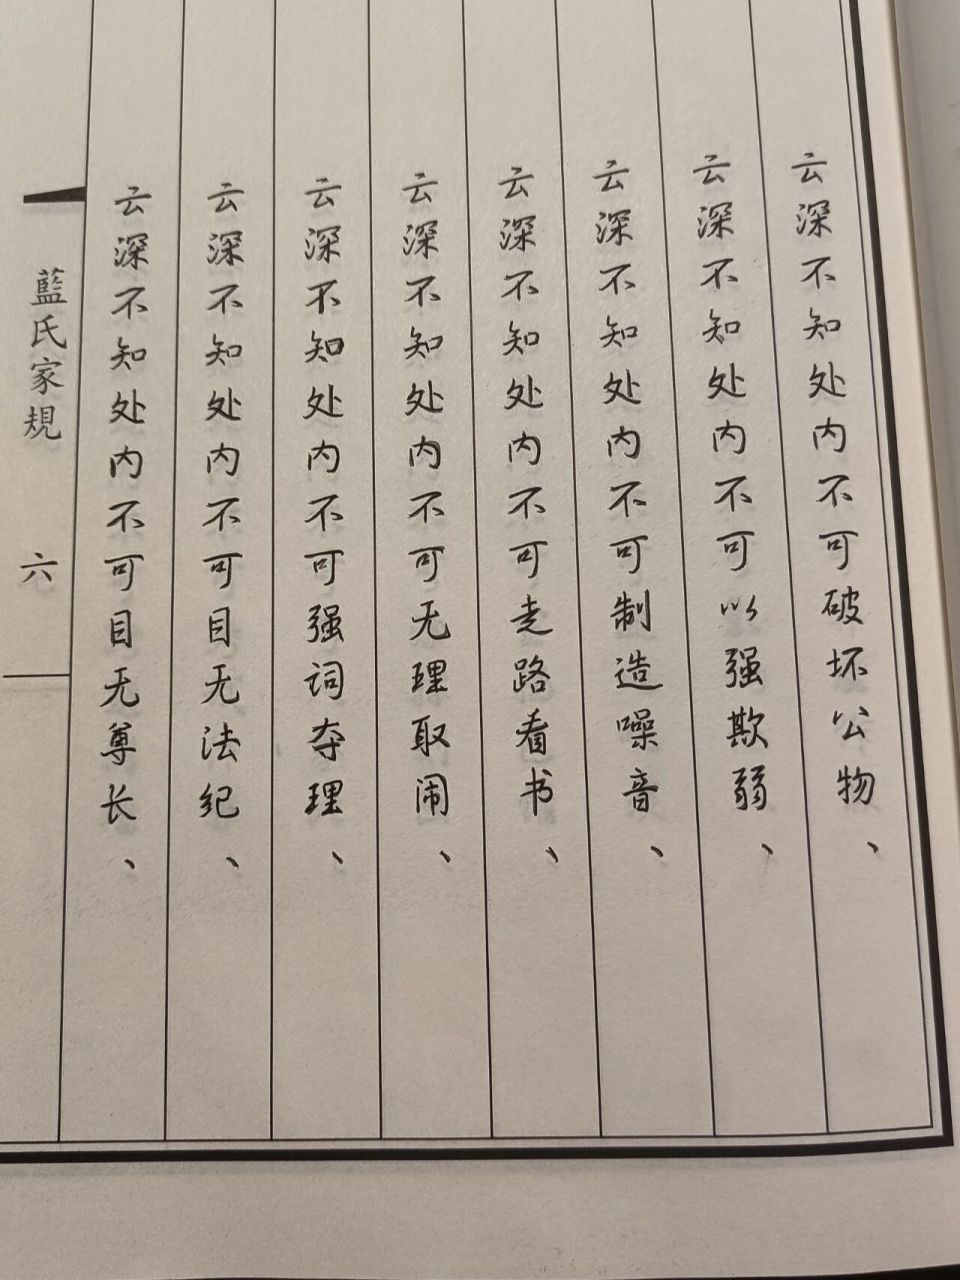 云深不知处内不可破坏公物、
云深不知处内不可以强欺弱、
云深不知处内不可制造噪音、
云深不知处内不可走路看书、
云深不知处内不可无理取闹、
云深不知处内不可强词夺理、
云深不知处内不可目无法纪、
云深不知处内不可目无尊长、
藍氏家規
六